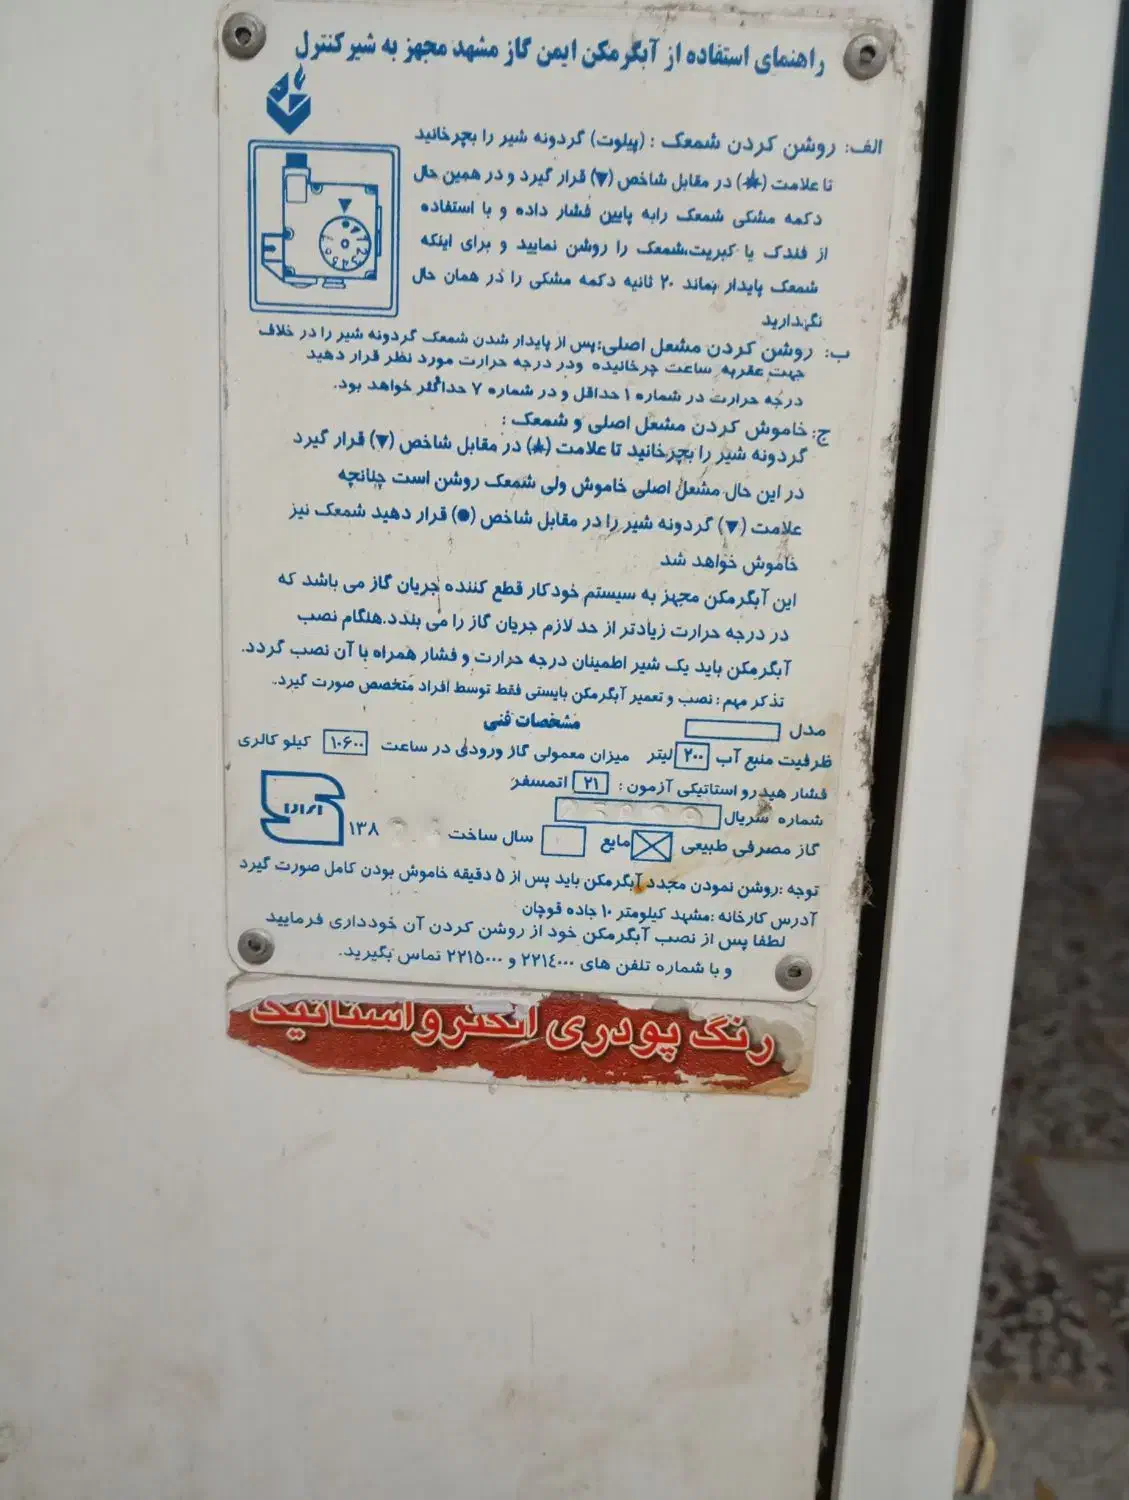 راهنمای استفاده از آبگرمکن ایمن گاز مشهد مجهز به شیر کنترل
الف: روشن کردن شمعک : (پیلوت) گردونه شیر را بچرخانید
تا علامت (★) در مقابل شاخص (▼) قرار گیرد و در همین حال
دکمه مشکی شمعک رابه پایین فشار داده و با استفاده
از فندک یا کبریت،شمعک را روشن نمایید و برای اینکه
شمعک پایدار بماند ۲۰ ثانیه دکمه مشکی را در همان حال
نگهدارید
ب: روشن کردن مشعل اصلی:پس از پایدار شدن شمعک گردونه شیر را در خلاف
جهت عقربه ساعت چرخانیده ودر درجه حرارت مورد نظر قرار دهید
درجه حرارت در شماره ۱ حداقل و در شماره ۷ حداکثر خواهد بود.
ج: خاموش کردن مشعل اصلی و شمعک :
گردونه شیر را بچرخانید تا علامت (★) در مقابل شاخص (▼) قرار گیرد
در این حال مشعل اصلی خاموش ولی شمعک روشن است چنانچه
علامت (▼) گردونه شیر را در مقابل شاخص (●) قرار دهید شمعک نیز
خاموش خواهد شد
این آبگرمکن مجهز به سیستم خودکار قطع کننده جریان گاز می باشد که
در درجه حرارت زیادتر از حد لازم جریان گاز را می بندد.هنگام نصب
آبگرمکن باید یک شیر اطمینان درجه حرارت و فشار همراه با آن نصب گردد.
تذکر مهم : نصب و تعمیر آبگرمکن بایستی فقط توسط افراد متخصص صورت گیرد.
مشخصات فنی
مدل
ظرفیت منبع آب ۲۰۰ لیتر میزان معمولی گاز ورودی در ساعت ۱۰۶۰۰ کیلو کالری
فشار هیدرو استاتیکی آزمون : ۲۱ اتمسفر
شماره سریال
گاز مصرفی طبیعی مایع سال ساخت ۱۳۸
توجه :روشن نمودن مجدد آبگرمکن باید پس از ۵ دقیقه خاموش بودن کامل صورت گیرد
آدرس کارخانه :مشهد کیلومتر ۱۰ جاده قوچان
لطفا پس از نصب آبگرمکن خود از روشن کردن آن خودداری فرمایید
و با شماره تلفن های ۲۲۱٤۰۰۰ و ۲۲۱۵۰۰۰ تماس بگیرید.
رنگ پودری الکترواستاتیک